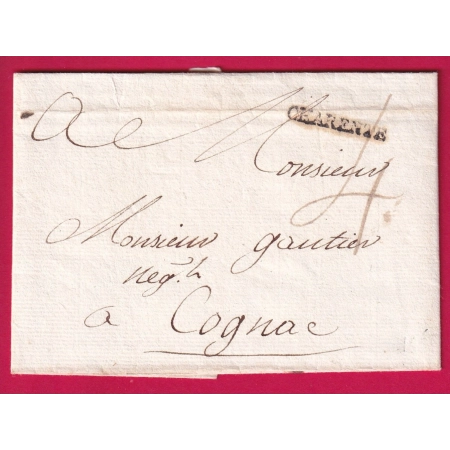 A
CHARENTE
Monsieur
4
Monsieur gautier
neg.t
a Cognac